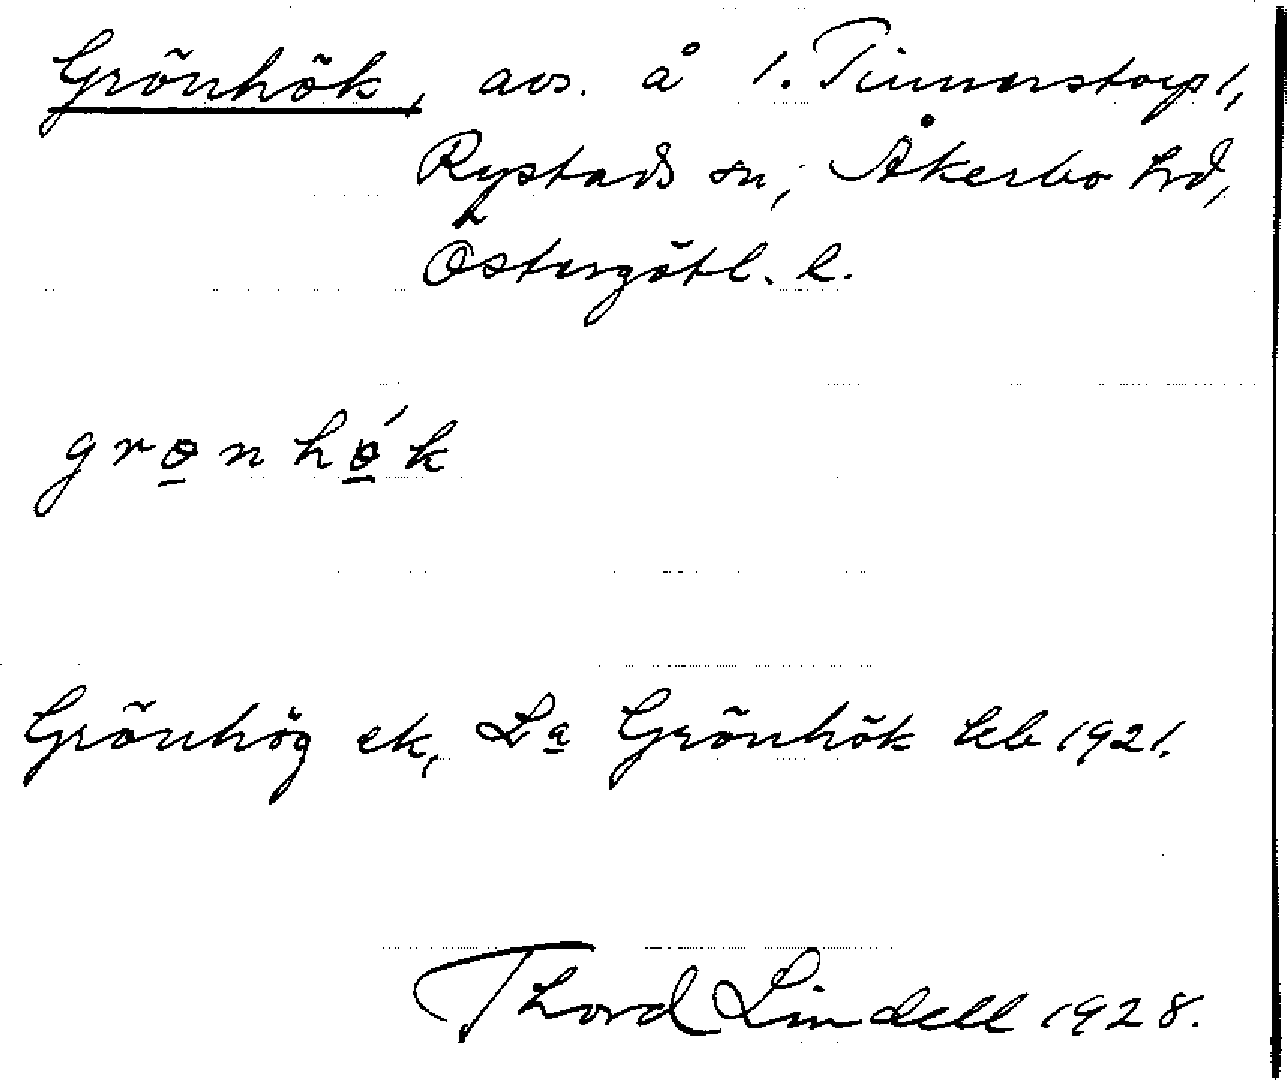 Grönhök, avs. å 1. Tinnerstorp 1,
Rystads sn, Åkerbo hd,
Östergötl. l.
grø̱nhǿ̱k
Grönhög ek, La Grönhök kb 1921.
Thord Lindell 1928.